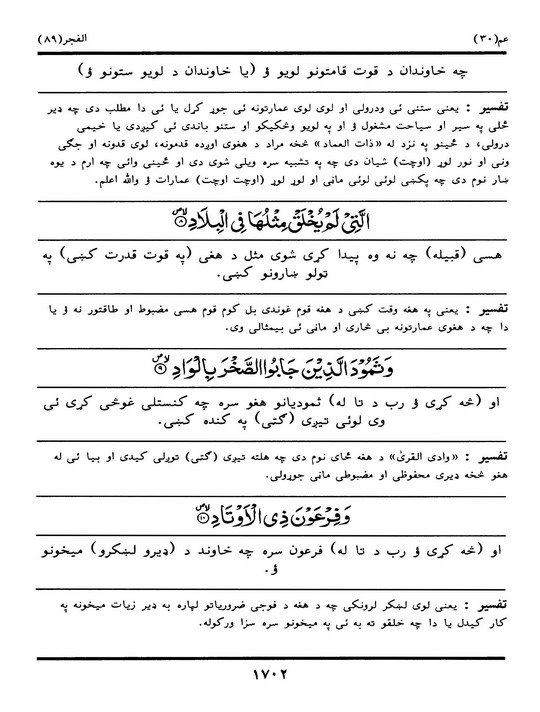 عم(٣٠) الفجر(٨٩)
چه خاوندان د قوت قامتونو لويو ؤ (يا خاوندان د لويو ستونو ؤ)
تفسير : يعنى ستنى ئى ودرولى او لوى لوى عمارتونه ئى جوړ كړل يا ئى دا مطلب دى چه ډير
ځلى په سير او سياحت مشغول ؤ او په لويو وڅكيكو او ستنو باندى ئى كيږدى يا خيمى
درولى، د ځينو په نزد له «ذات العماد» څخه مراد د هغوى اوږده قدمونه، لوى قدونه او جګى
ونى او نور لوړ (اوچت) شيان دى چه په تشبيه سره ويلى شوى دى او ځينى وائى چه ارم د يوه
ښار نوم دى چه پكښى لوئى لوئى مانى او لوړ لوړ (اوچت اوچت) عمارات ؤ والله اعلم.
الَّتِيْ لَمْ يُخْلَقْ مِثْلُهَا فِي الْبِلَادِ ۝۸
هسى (قبيله) چه نه وه پيدا كړى شوى مثل د هغى (په قوت قدرت كښى) په
ټولو ښارونو كښى.
تفسير : يعنى په هغه وقت كښى د هغه قوم غوندى بل كوم قوم هسى مضبوط او طاقتور نه ؤ يا
دا چه د هغوى عمارتونه بى څارى او مانى ئى بيمثالى وى.
وَثَمُوْدَ الَّذِيْنَ جَابُوا الصَّخْرَ بِالْوَادِ ۝۹
او (څه كړى ؤ رب د تا له) ثموديانو هغو سره چه كنستلى غوڅى كړى ئى
وى لوئى تيږى (ګتى) په كنده كښى.
تفسير : «وادى القرىٰ» د هغه ځاى نوم دى چه هلته تيږى (ګتى) توږلى كيدى او بيا ئى له
هغو څخه ډيرى محفوظى او مضبوطى مانى جوړولى.
وَفِرْعَوْنَ ذِي الْاَوْتَادِ ۝۱۰
او (څه كړى ؤ رب د تا له) فرعون سره چه خاوند د (ډيرو لښكرو) ميخونو
ؤ.
تفسير : يعنى لوى لښكر لرونكى چه د هغه د فوجى ضرورياتو لپاره به ډير زيات ميخونه په
كار كيدل يا دا چه خلقو ته به ئى په ميخونو سره سزا وركوله.
١٧٠٢